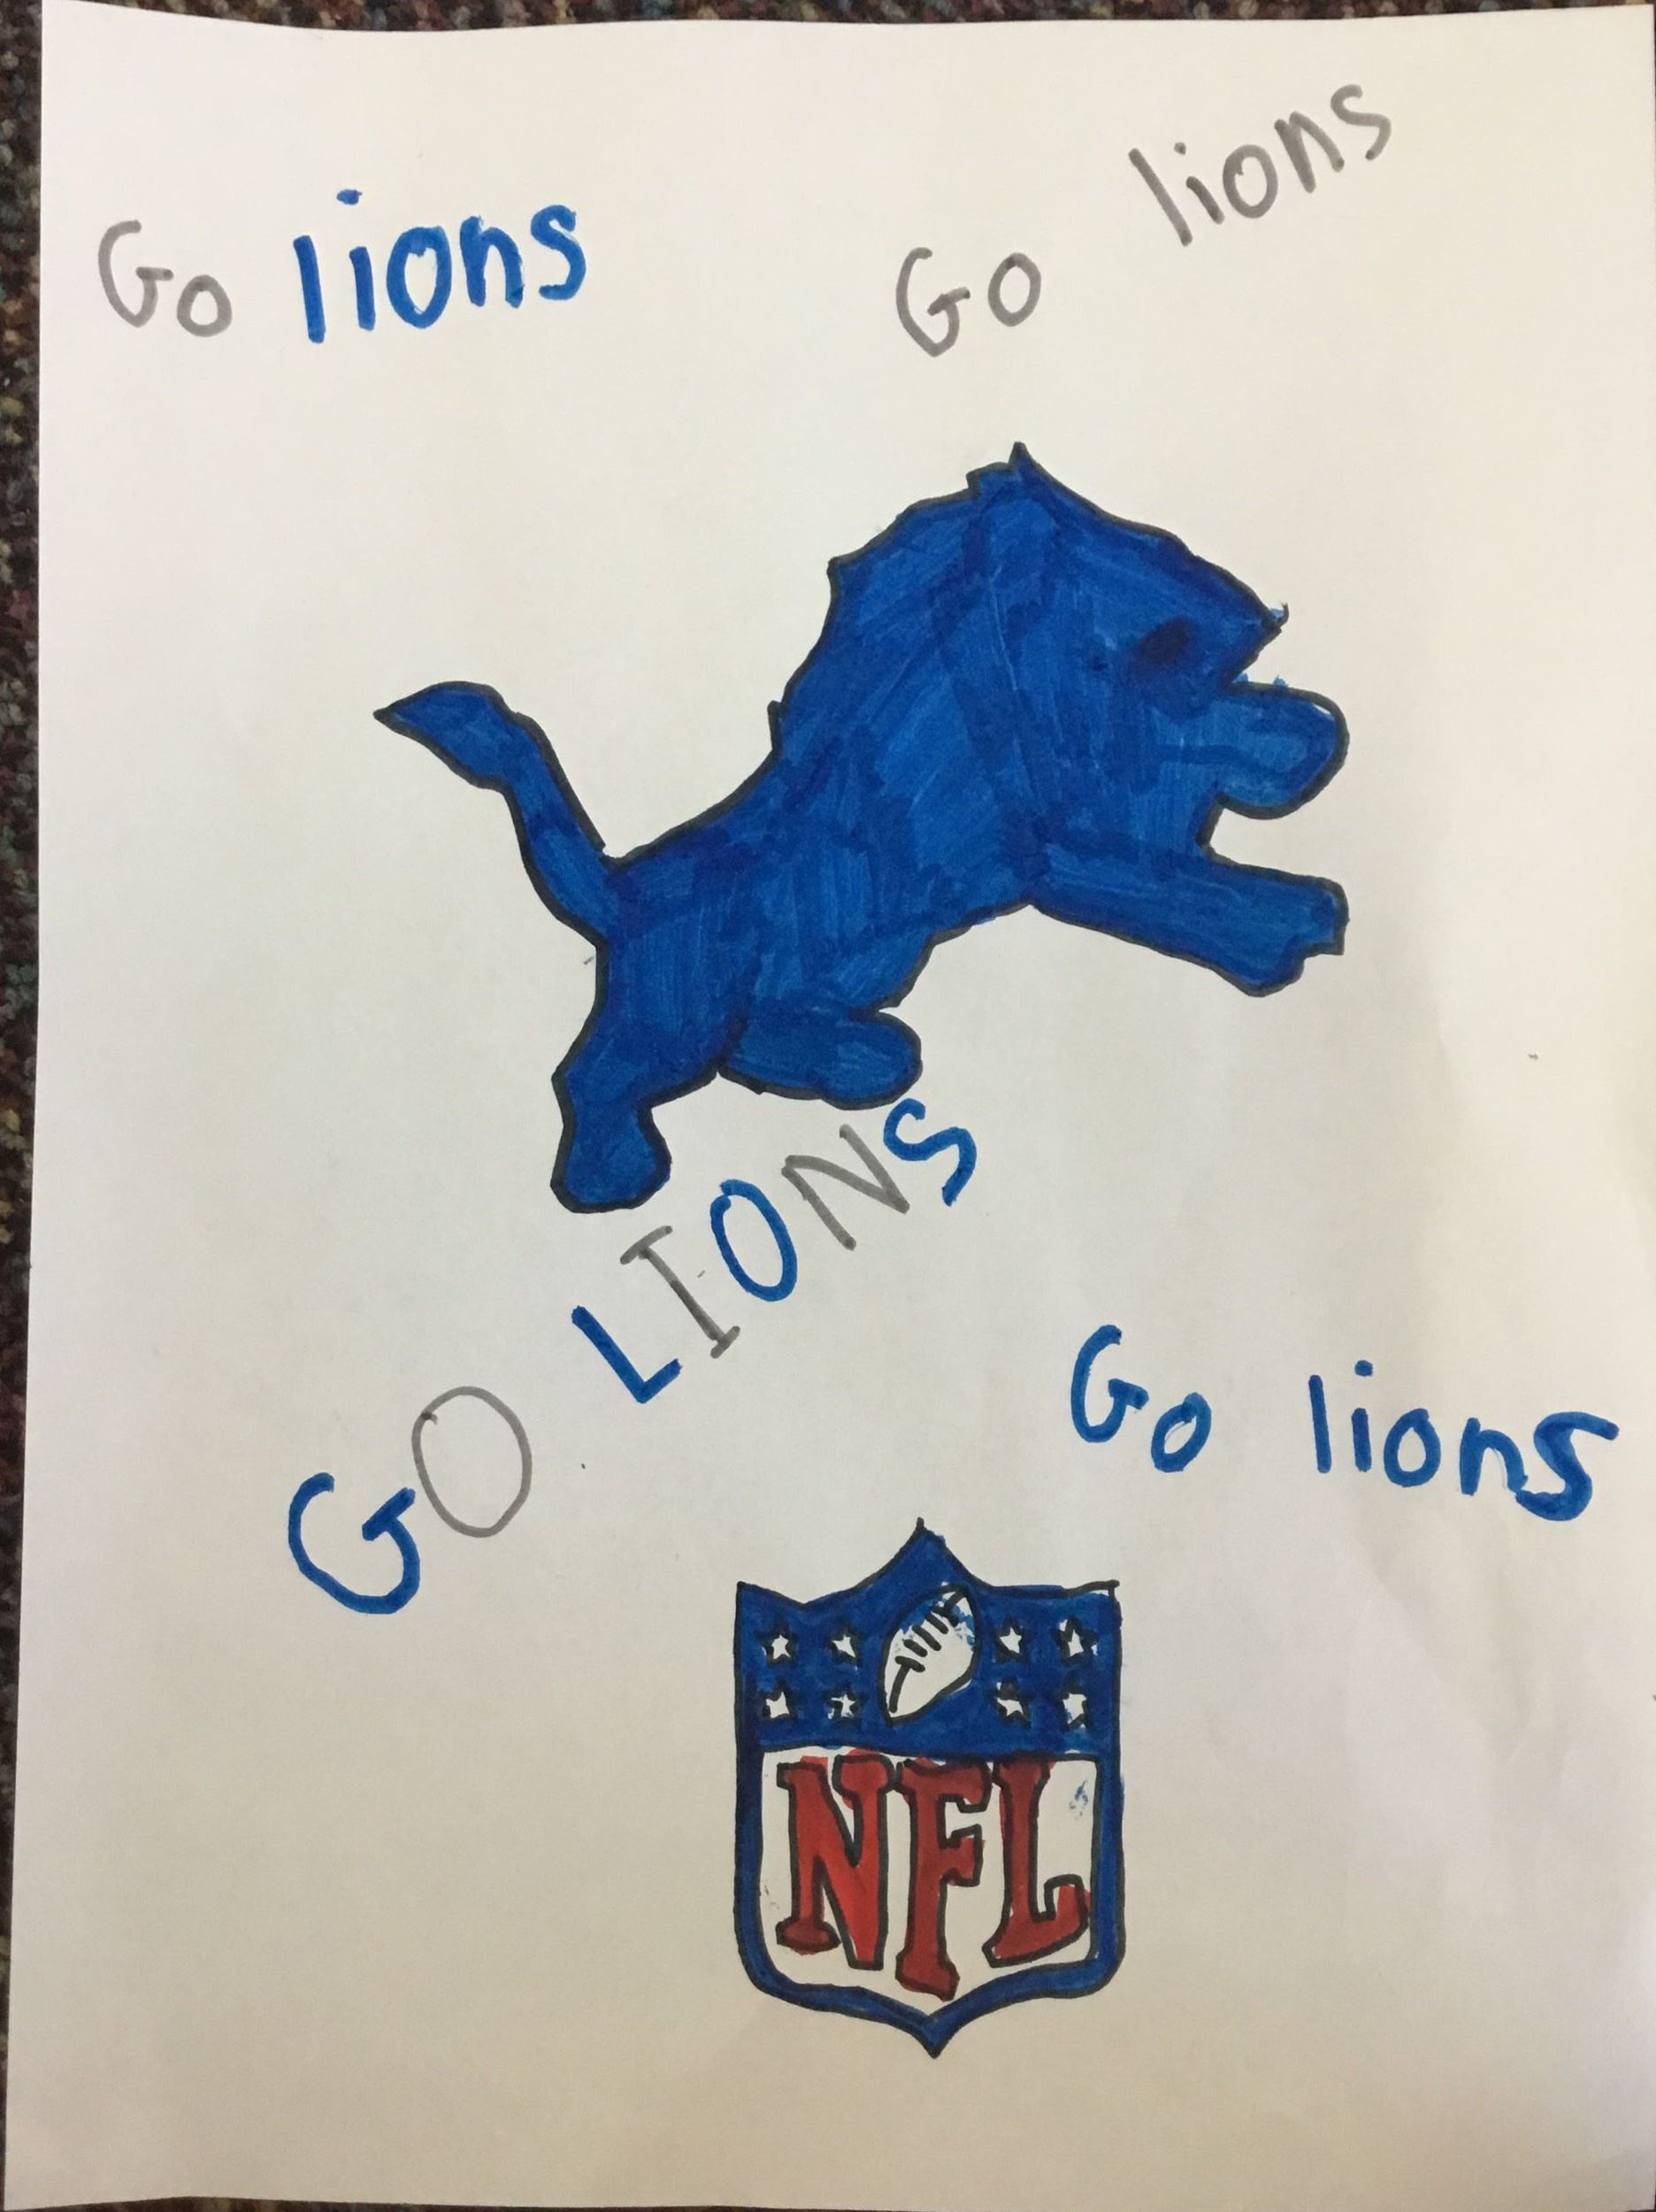 Go lions
Go lions
GO LIONS
Go lions
NFL